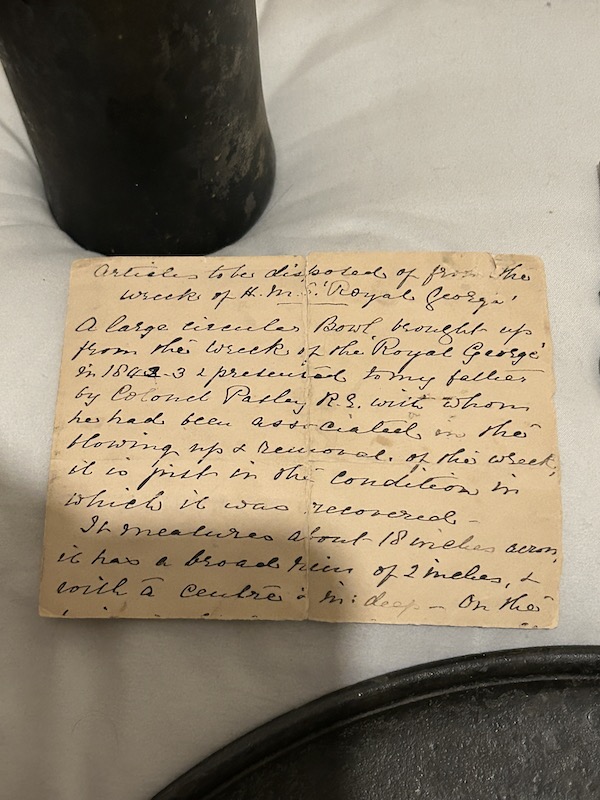 Articles to be disposed of from the
wreck of H.M.S. 'Royal George'
A large circular Bowl brought up
from the wreck of the 'Royal George'
in 1842-3 & presented to my father
by Colonel Pasley R.E. with whom
he had been associated in the
blowing up & removal of the wreck,
it is just in the condition in
which it was recovered -
It measures about 18 inches across,
it has a broad rim of 2 inches, &
with a centre in: deep - On the